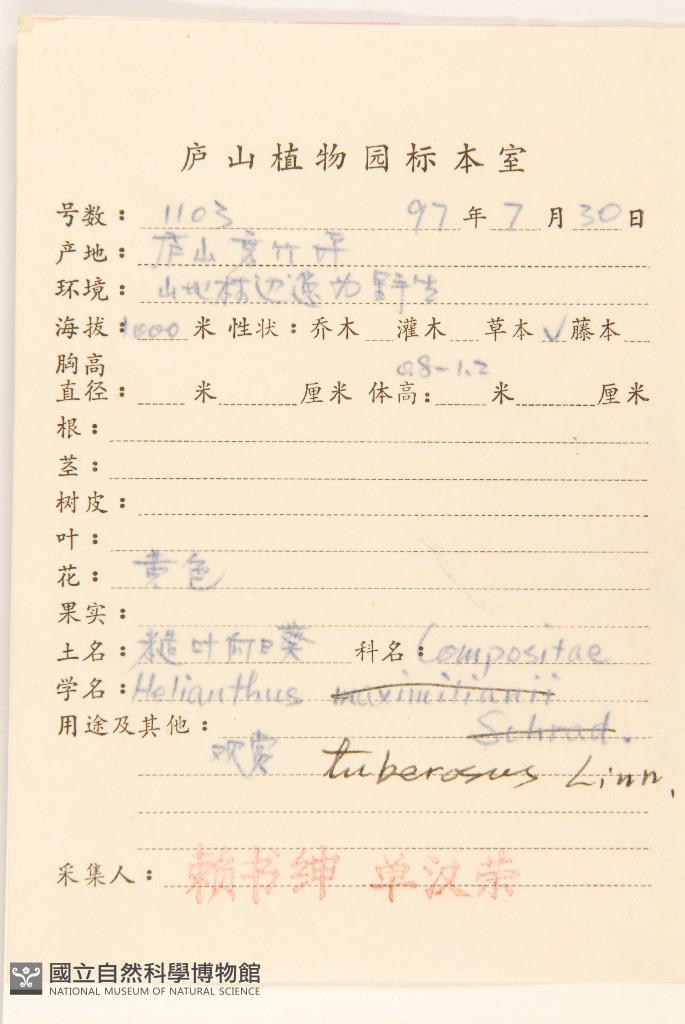 庐山植物园标本室
号数： 1103 97年7月30日
产地： 庐山 竹坪
环境： 山地林边逸为野生
海拔：1000米 性状：乔木 灌木 草本✓藤本
胸高 0.8-1.2
直径： 米 厘米 体高： 米 厘米
根：
茎：
树皮：
叶：
花： 黄色
果实：
土名：糙叶向日葵 科名：Compositae
学名：Helianthus maximilianii
用途及其他： Schrad.
观赏 tuberosus Linn.
采集人： 赖书绅 单汉荣
國立自然科學博物館
NATIONAL MUSEUM OF NATURAL SCIENCE